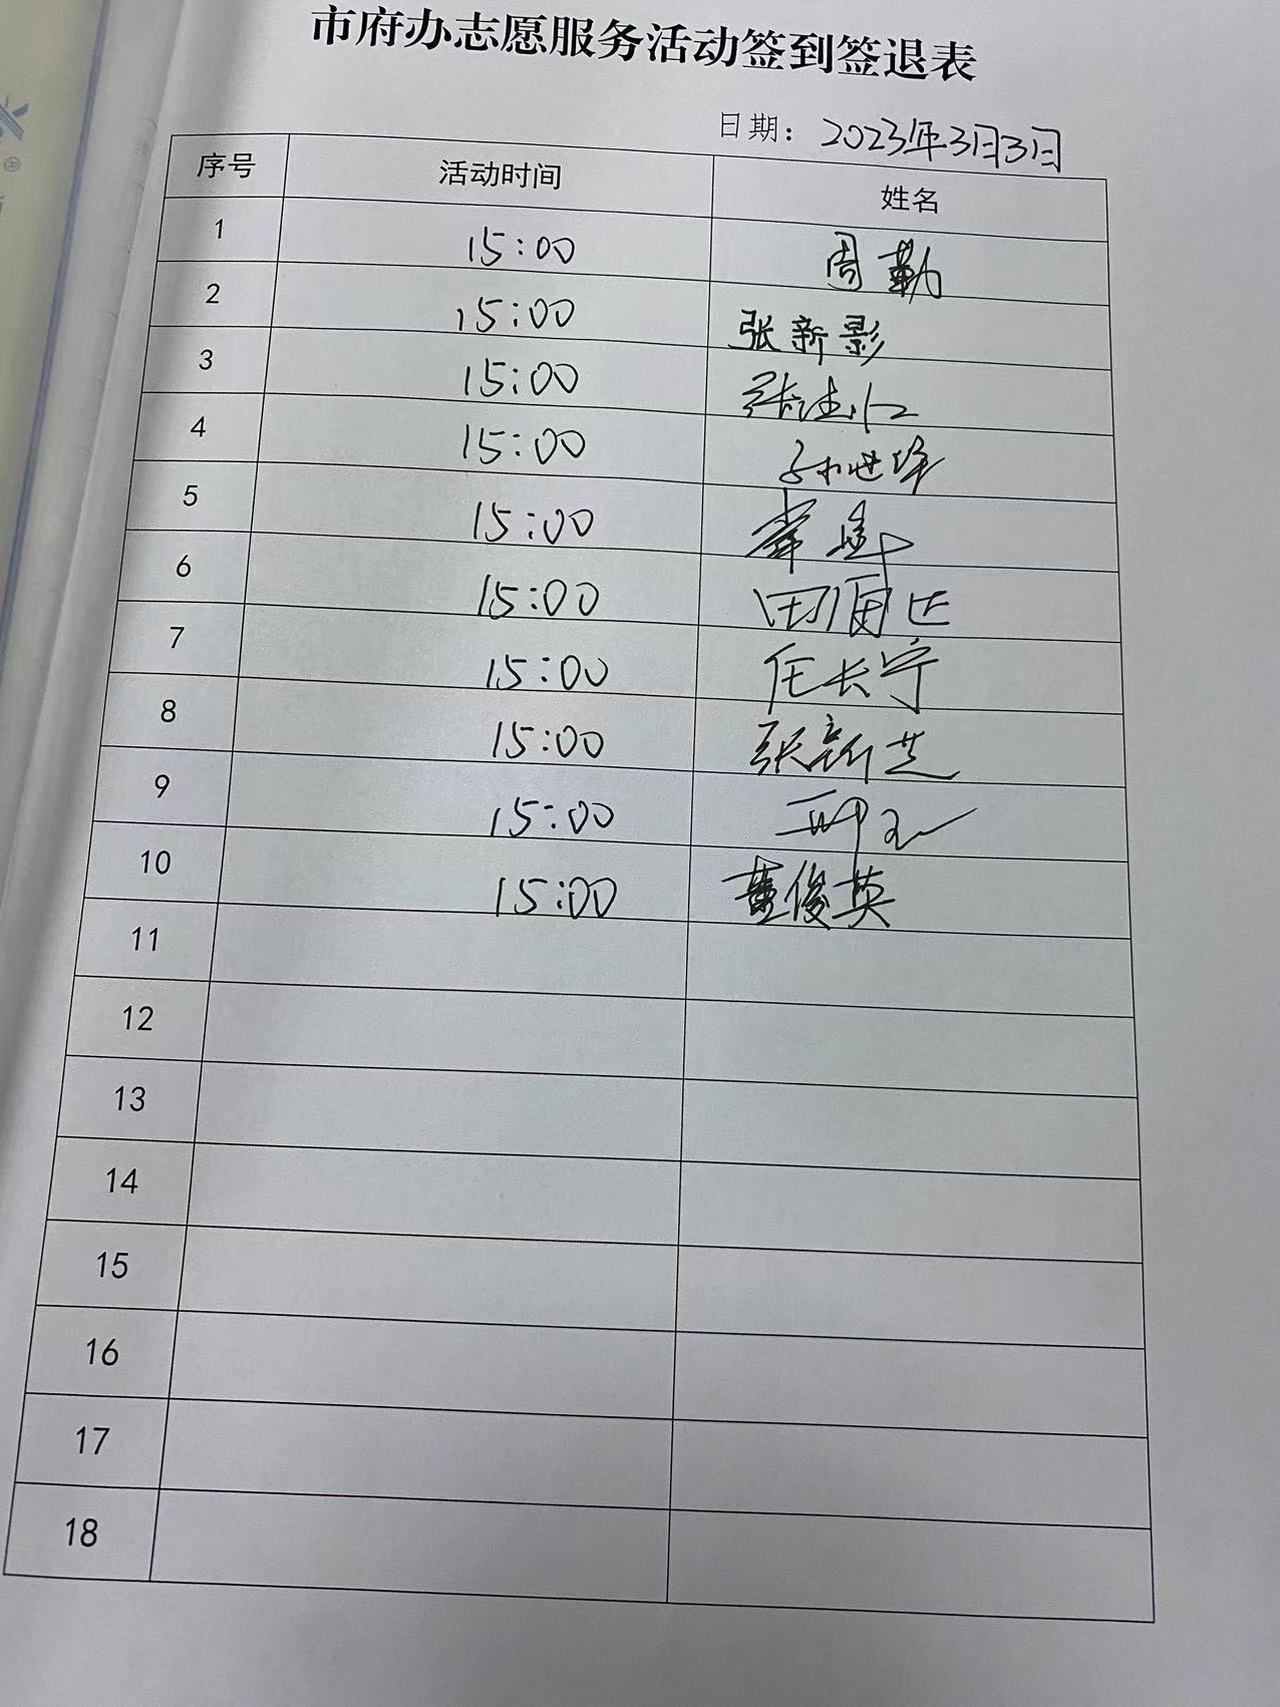 市府办志愿服务活动签到签退表
日期：2023年3月3日
序号 活动时间 姓名
1 15:00 周勤
2 15:00 张新影
3 15:00 张
4 15:00 孙世华
5 15:00
6 15:00 田甫正
7 15:00 任长宁
8 15:00 张新芝
9 15:00
10 15:00 董俊英
11
12
13
14
15
16
17
18